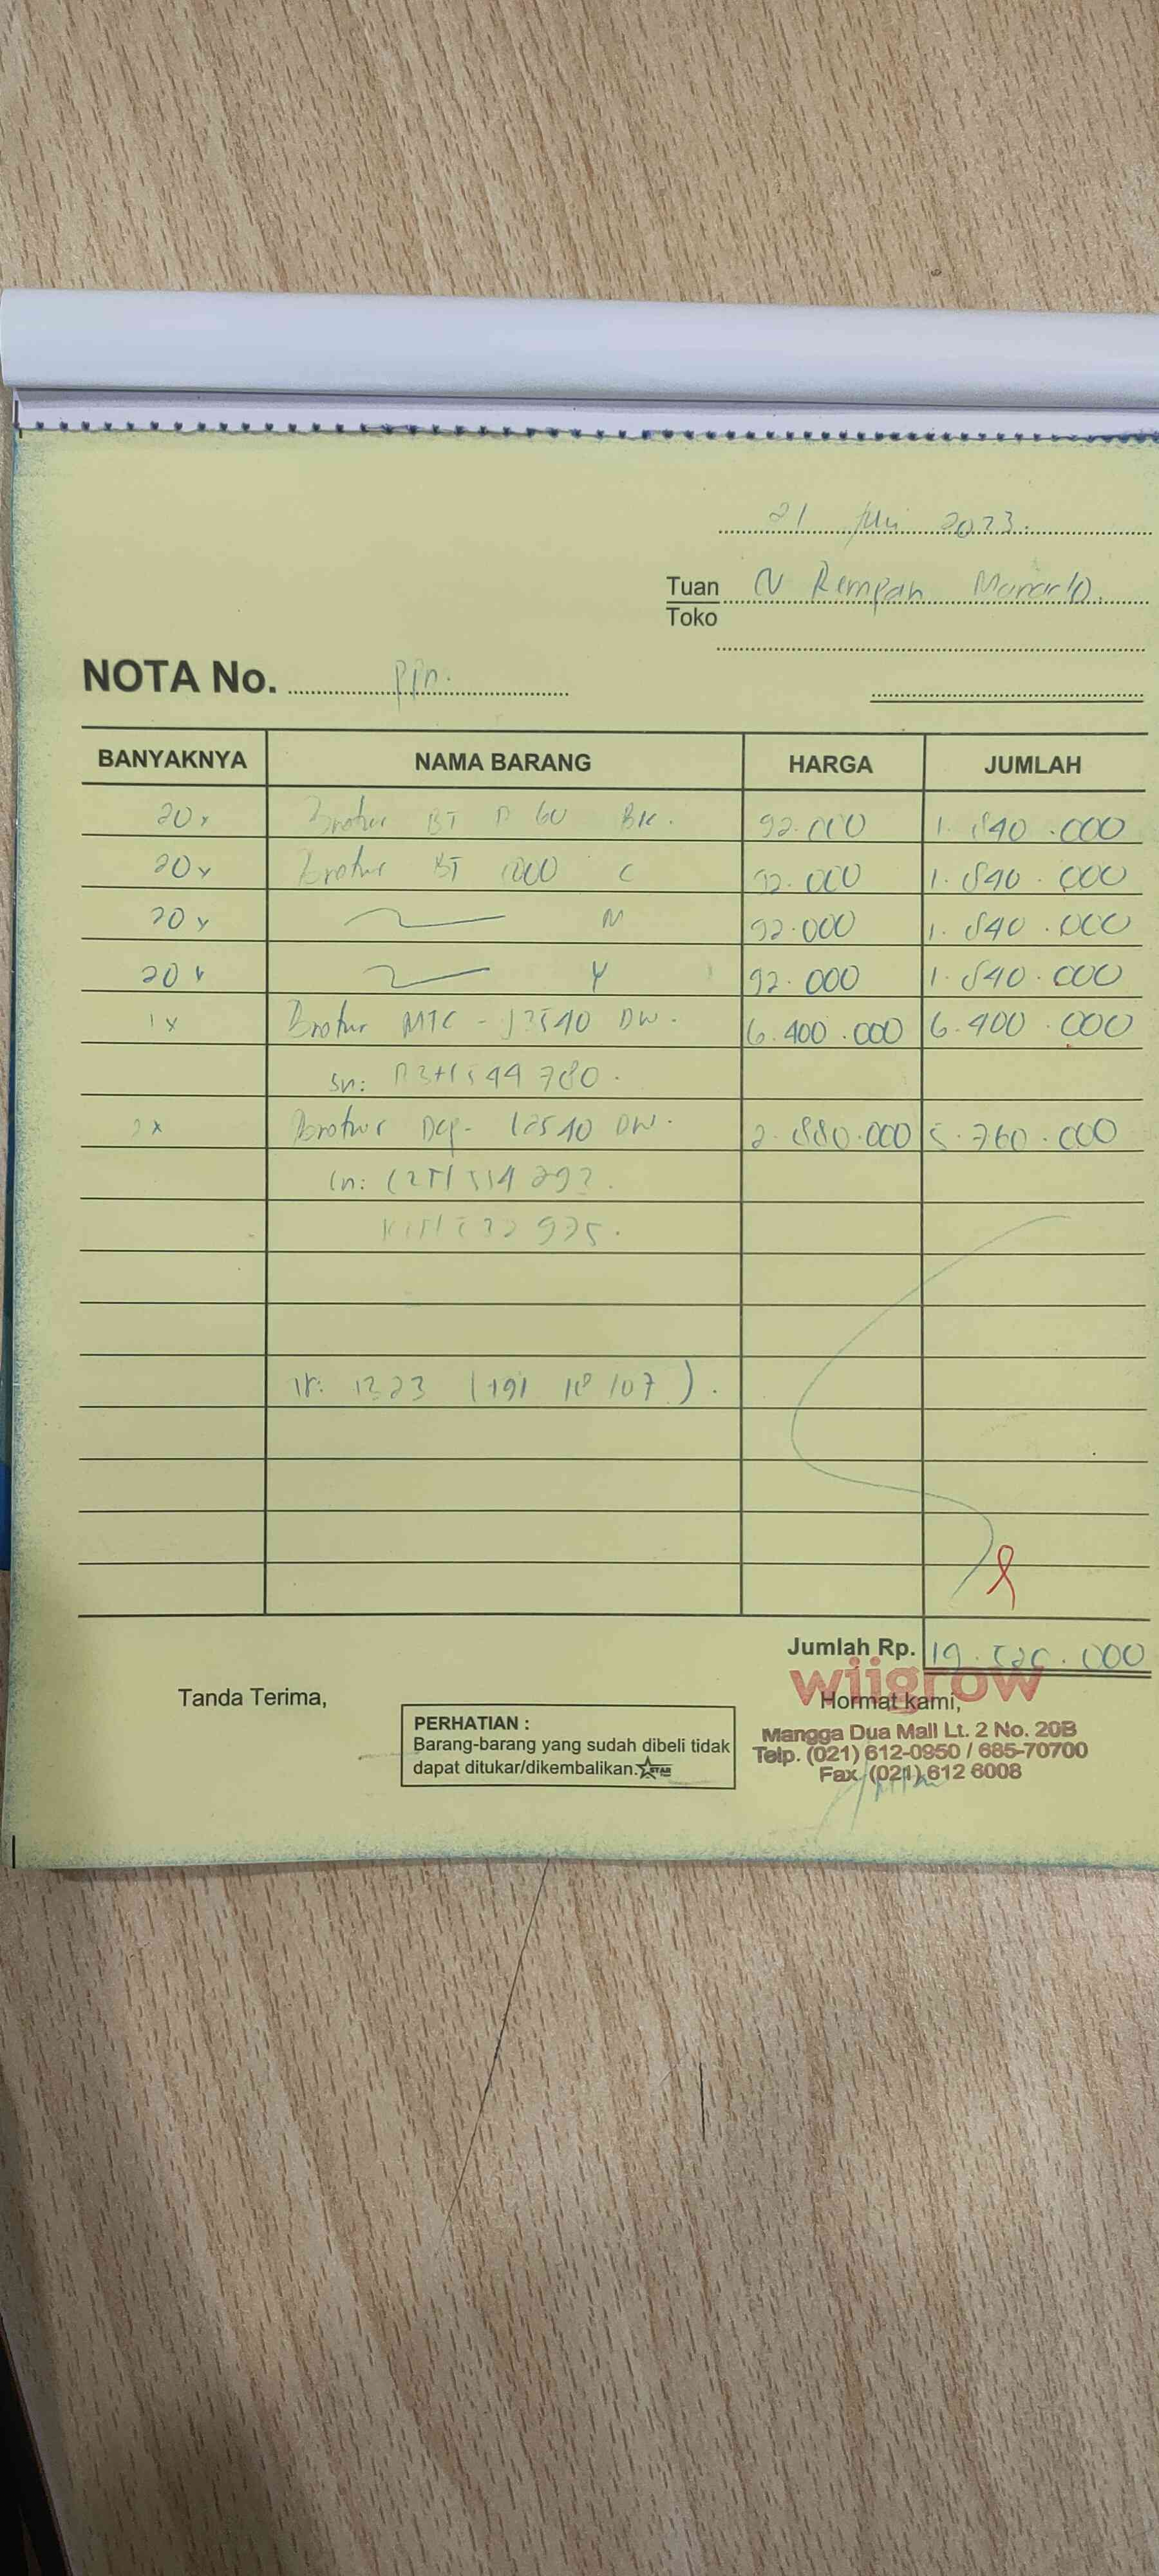 21 Juli 2023.
Tuan CV Rempah Manado.
Toko
NOTA No. ppn.
BANYAKNYA NAMA BARANG HARGA JUMLAH
20x Brother BT D 60 BK. 92.000 1.840.000
20x Brother BT 5000 C 92.000 1.840.000
20x M 92.000 1.840.000
20x Y 92.000 1.840.000
1x Brother MFC - J3540 DW. 6.400.000 6.400.000
sn:
2x Brother Dcp- L2540 DW. 2.880.000 5.760.000
sn:
1323
Jumlah Rp. 19.520.000
wiigrow
Tanda Terima, Hormat kami,
PERHATIAN :
Barang-barang yang sudah dibeli tidak
dapat ditukar/dikembalikan. STAR
Mangga Dua Mall Lt. 2 No. 20B
Telp. (021) 612-0950 / 685-70700
Fax. (021) 612 6008